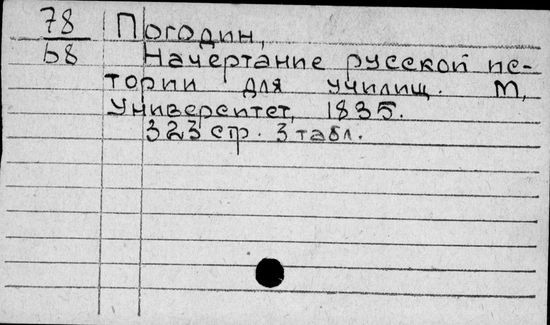 78 Погодин,
68 Начертание русской ис-
тории для училищ. М,
Университет, 1835.
323 стр. 3 табл.